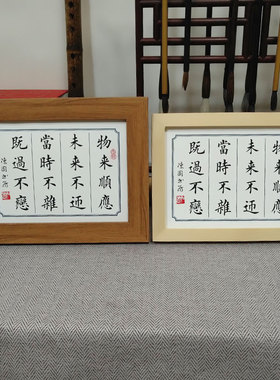 物来順應
未来不迎
當時不雜
既過不戀
物来順應
未来不迎
當時不雜
既過不戀